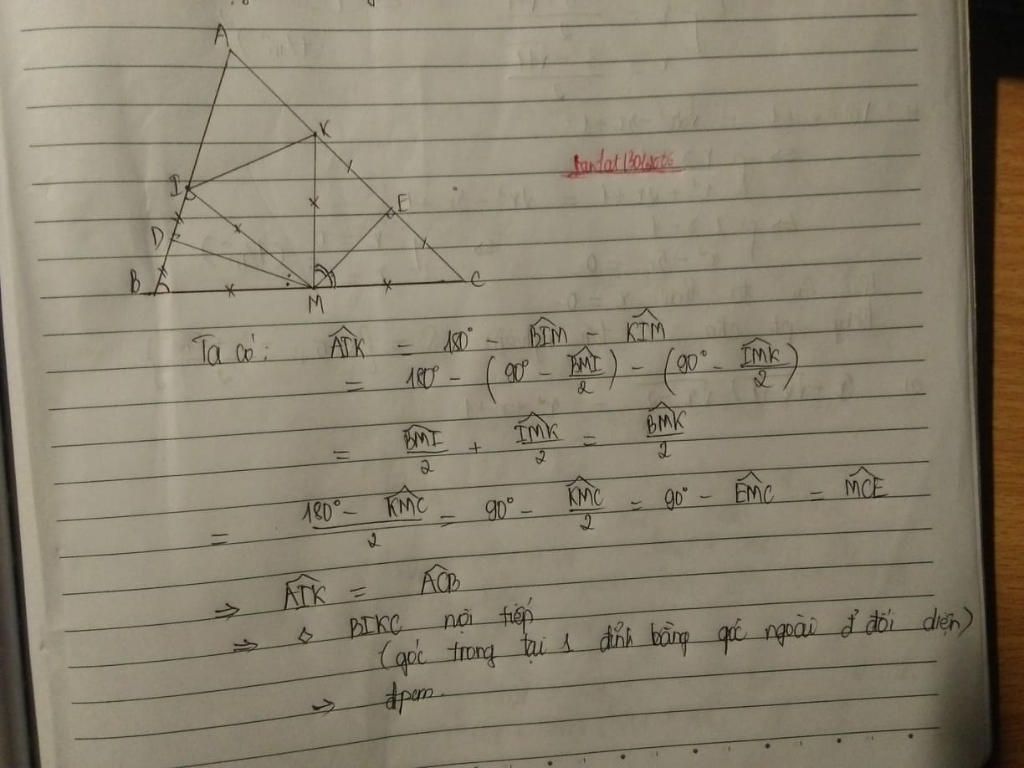 A
K
I
E
D
B
M
C
Ta có: \widehat{AIK} = 180° - \widehat{BIM} - \widehat{KIM}
= 180° - (90° - \frac{\widehat{BMI}}{2}) - (90° - \frac{\widehat{IMK}}{2})
= \frac{\widehat{BMI}}{2} + \frac{\widehat{IMK}}{2} = \frac{\widehat{BMK}}{2}
= \frac{180° - \widehat{KMC}}{2} = 90° - \frac{\widehat{KMC}}{2} = 90° - \widehat{EMC} = \widehat{MCE}
⇒ \widehat{AIK} = \widehat{ACB}
⇒ ◊ BIKC nội tiếp
(góc trong tại 1 đỉnh bằng góc ngoài ở đối diện)
⇒ đpcm.